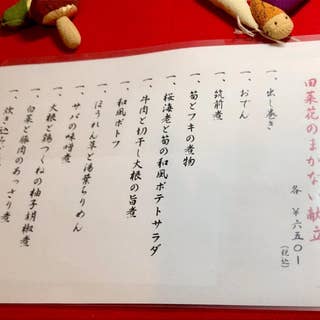 田菜花のまかない献立
各 ¥六五〇ー
(税込)
一、出し巻き
一、おでん
一、筑前煮
一、筍とフキの煮物
一、桜海老と筍の和風ポテトサラダ
一、牛肉と切干し大根の旨煮
一、和風ポトフ
一、ほうれん草と湯葉ちりめん
一、サバの味噌煮
一、大根と鶏つくねの柚子胡椒煮
一、白菜と豚肉のあっさり煮
炊き込み